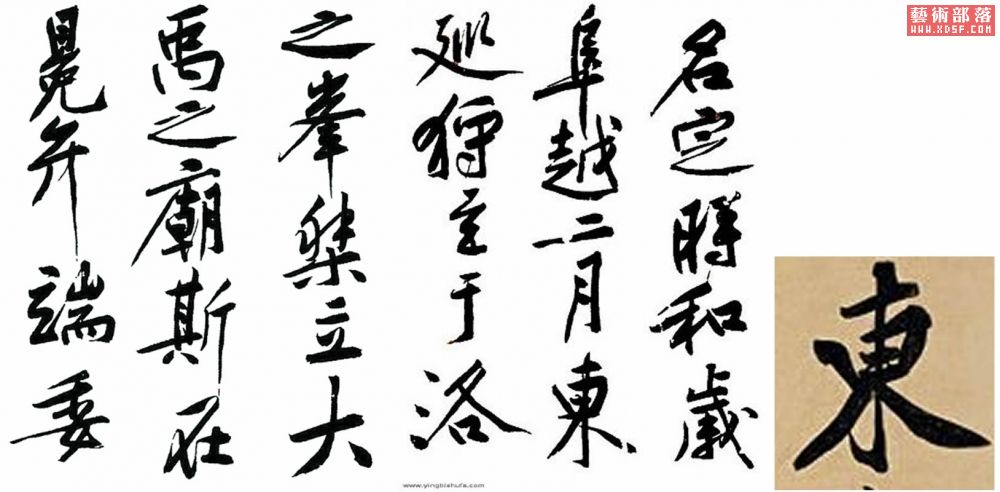 藝術部落
WWW.XDSF.COM
名定時和歲
阜越二月東
巡狩至于洛
之峯桀立大
禹之廟斯在
冕弁端委
東
www.yingbishufa.com